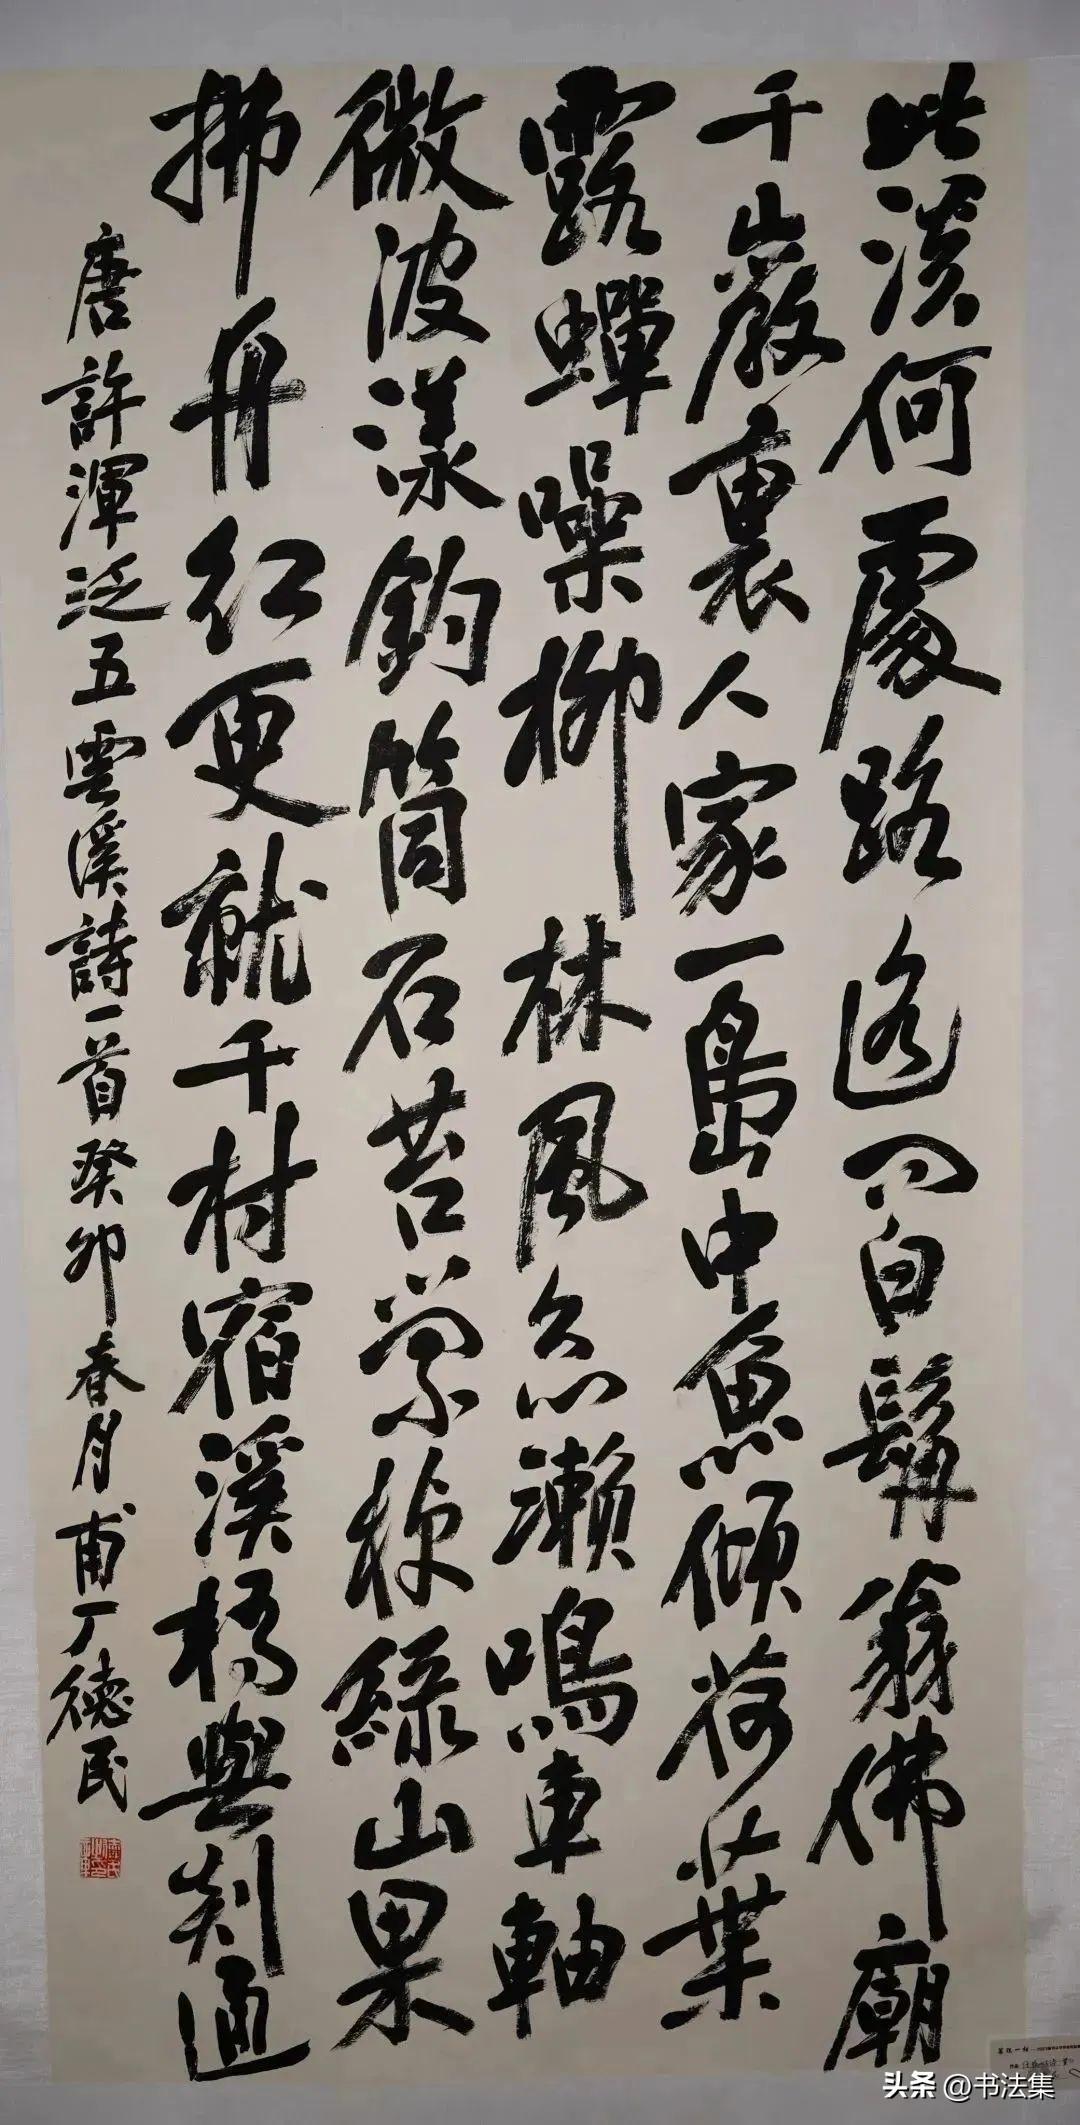 此溪何處路遙問白髯翁佛廟
千巖裏人家一島中魚傾荷葉
露蟬噪柳林風急瀨鳴車軸
微波漾釣筒石苔縈棹綠山果
拂舟紅更就千村宿溪橋與剡通
唐許渾泛五雲溪詩一首癸卯春月甫丁德民
头条 @书法集